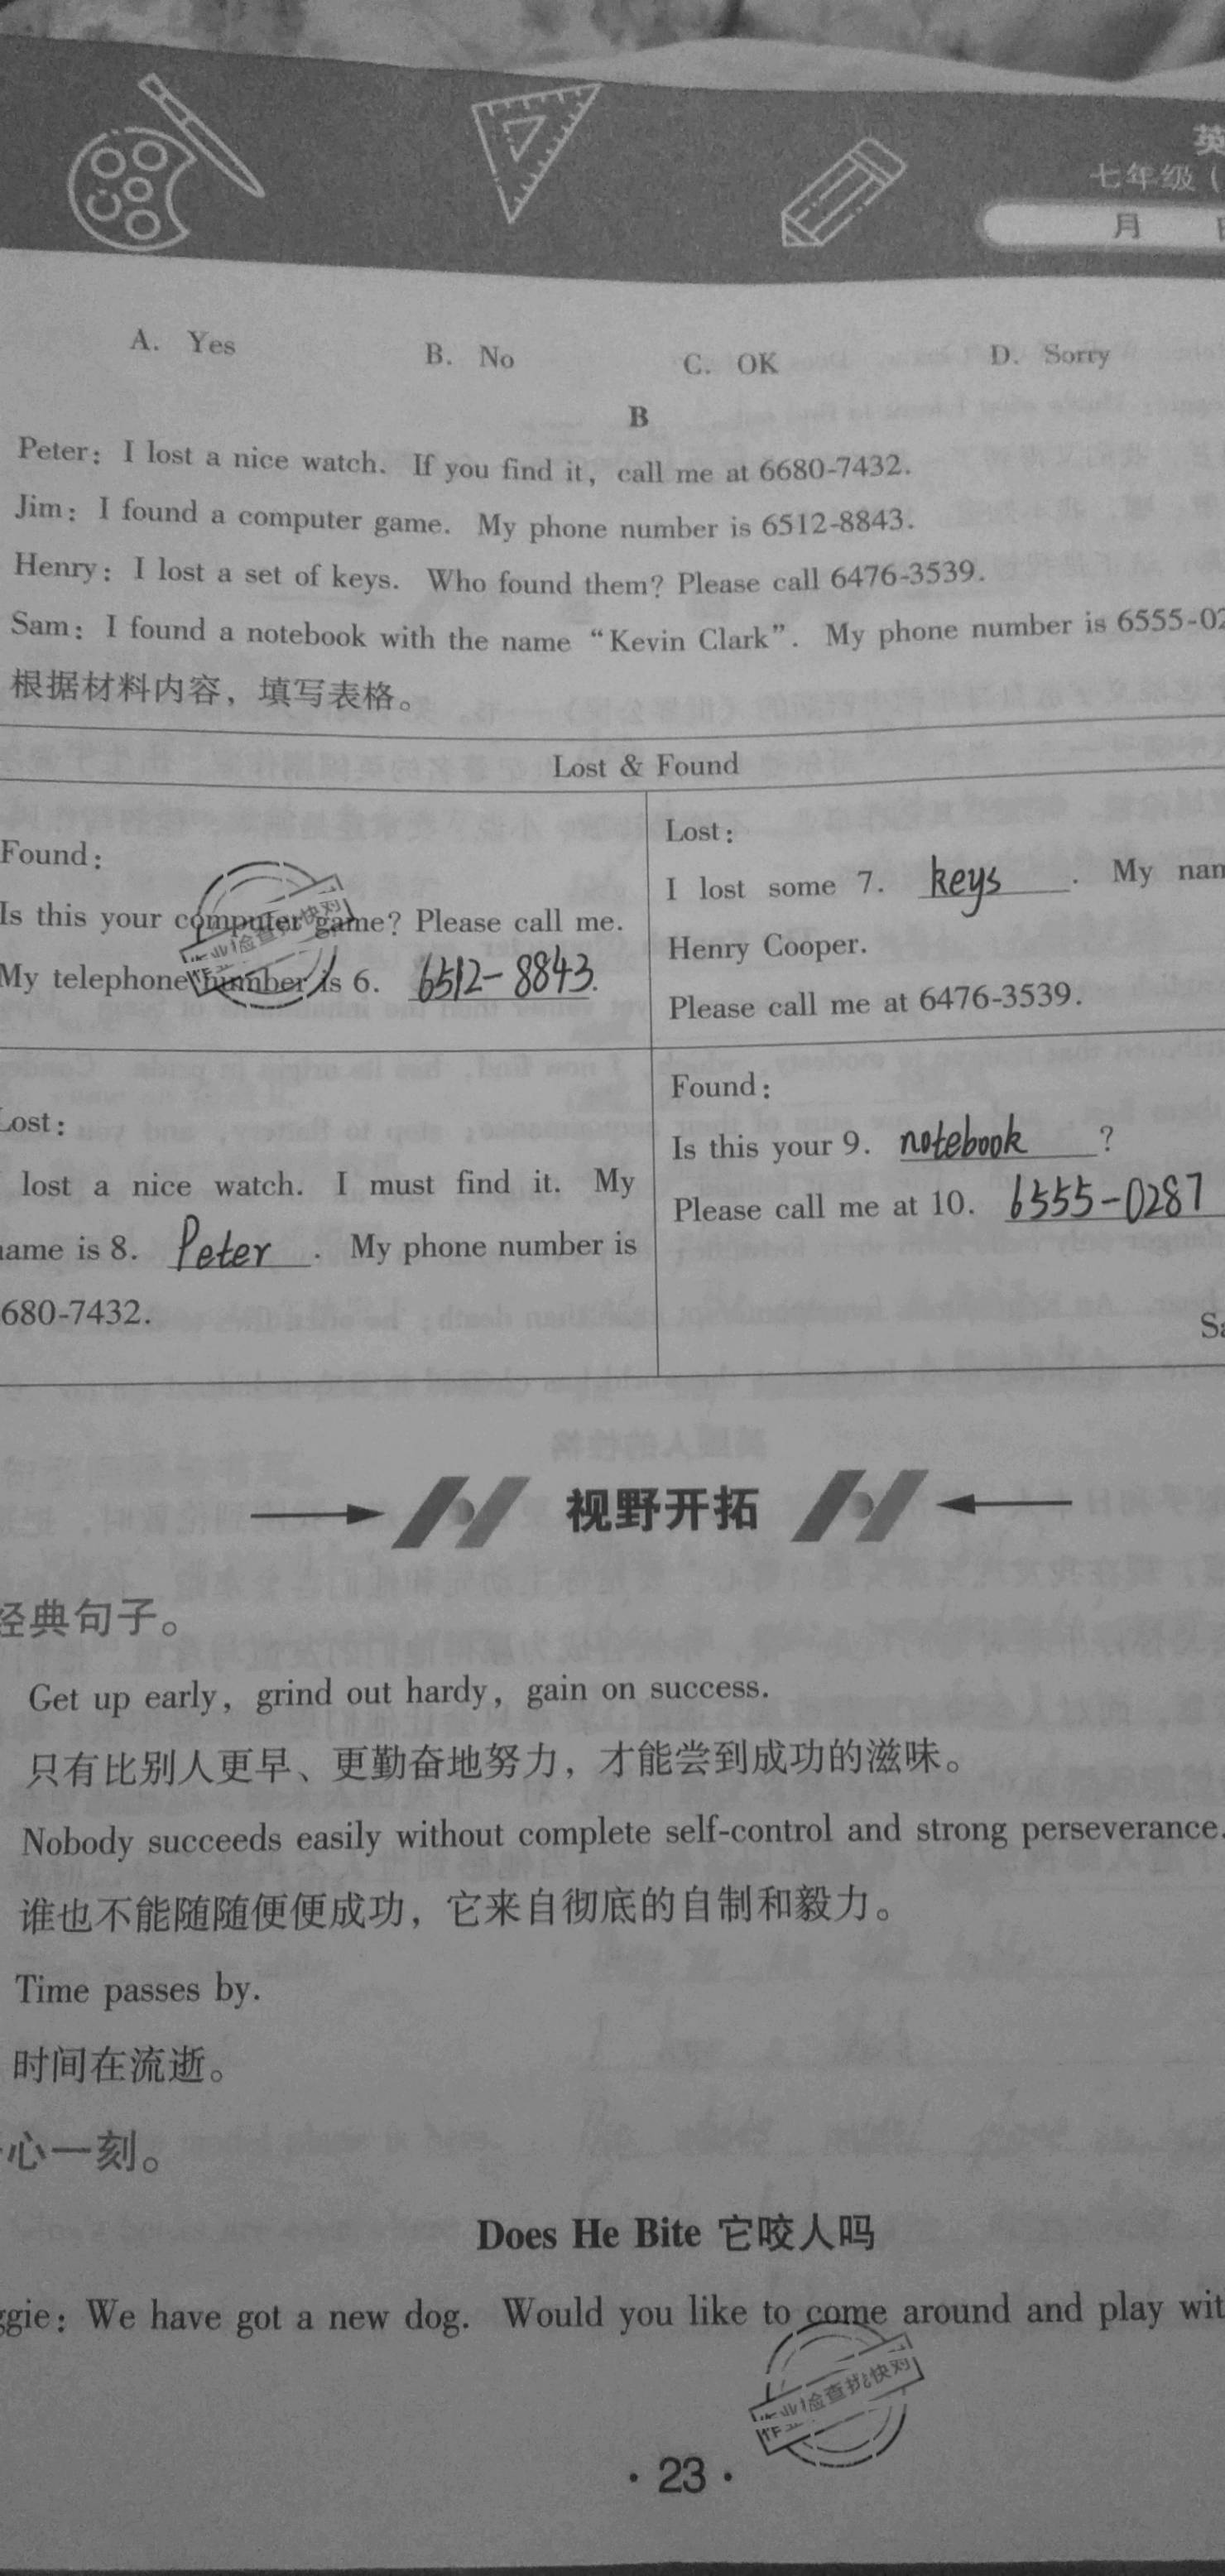 英
七年级（
月
A. Yes B. No C. OK D. Sorry
B
Peter: I lost a nice watch. If you find it, call me at 6680-7432.
Jim: I found a computer game. My phone number is 6512-8843.
Henry: I lost a set of keys. Who found them? Please call 6476-3539.
Sam: I found a notebook with the name “Kevin Clark”. My phone number is 6555-02
根据材料内容，填写表格。
Lost & Found
Found:
Is this your computer game? Please call me.
My telephone number is 6. 6512-8843.
Lost:
I lost some 7. keys. My nam
Henry Cooper.
Please call me at 6476-3539.
Lost:
lost a nice watch. I must find it. My
name is 8. Peter. My phone number is
680-7432.
Found:
Is this your 9. notebook?
Please call me at 10. 6555-0287
Sa
视野开拓
经典句子。
Get up early, grind out hardy, gain on success.
只有比别人更早、更勤奋地努力，才能尝到成功的滋味。
Nobody succeeds easily without complete self-control and strong perseverance.
谁也不能随随便便成功，它来自彻底的自制和毅力。
Time passes by.
时间在流逝。
心一刻。
Does He Bite 它咬人吗
ggie: We have got a new dog. Would you like to come around and play wit
·23·